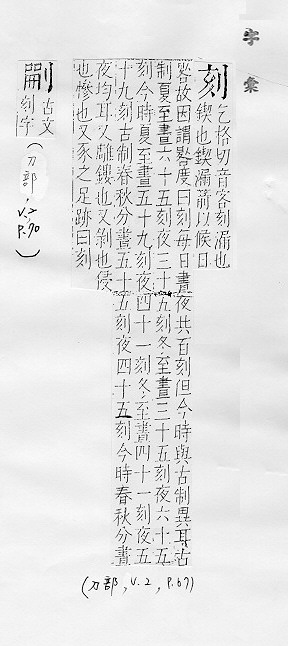 字彙
刻 乞格切音客刻漏也
鍥也鍥漏箭以候日
晷故因謂晷度曰刻每日晝夜共百刻但今時與古制異耳古
制夏至晝六十五刻夜三十九刻冬至晝三十五刻夜六十五
刻今時夏至晝五十九刻夜四十一刻冬至晝四十一刻夜五
十九刻古制春秋分晝五十五刻夜四十五刻今時春秋分晝
夜均耳又雕鏤也又剝也侵
也慘也又豕之足跡曰刻
(刀部, V.2, P.67)
古文
刻字
(刀部, V.2 P.70)